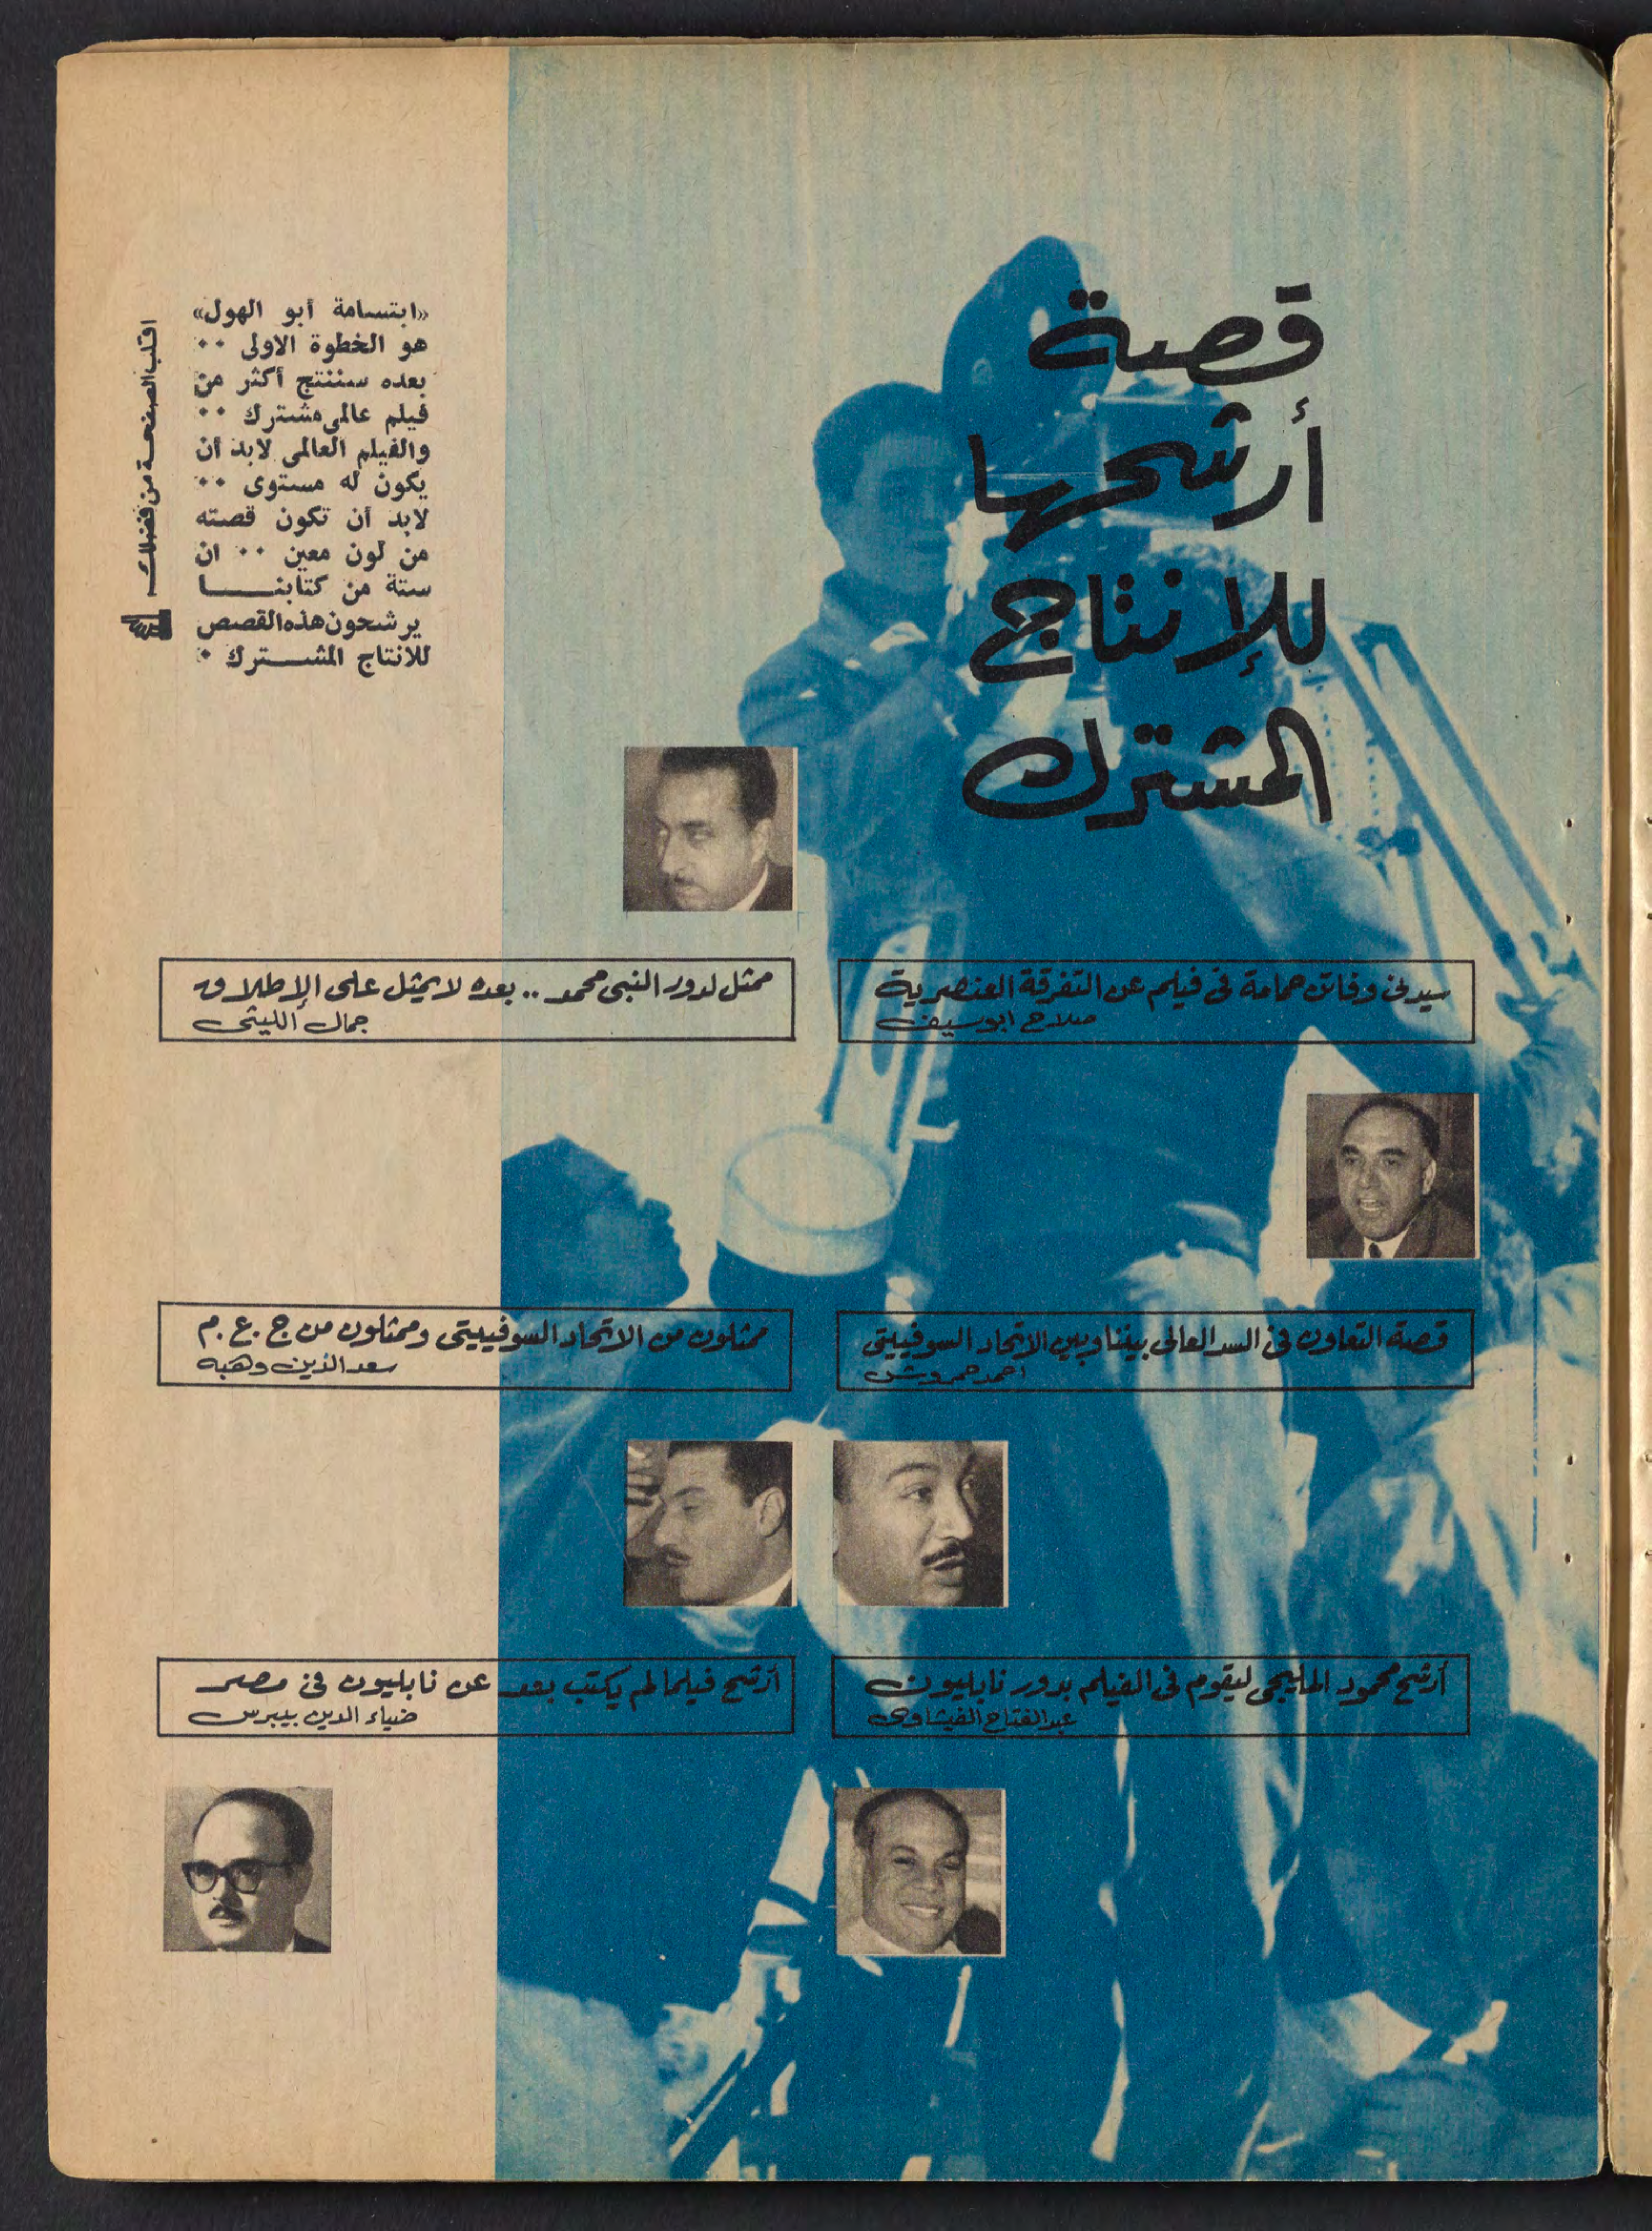 قصة
أرشحها
للإنتاج
المشترك
«ابتسامة أبو الهول»
هو الخطوة الاولى ..
بعده سننتج أكثر من
فيلم عالمى مشترك ..
والفيلم العالمى لابد أن
يكون له مستوى ..
لابد أن تكون قصته
من لون معين .. ان
ستة من كتابنا
يرشحون هذه القصص
للانتاج المشترك .
اقلب الصفحة من فضلك
سيدنى وفاتن حمامة فى فيلم عن التفرقة العنصرية
صلاح ابوسيف
ممثل لدور النبى محمد .. بعده لا يمثل على الإطلاق
جمال الليثى
قصة التعاون فى السد العالى بيننا وبين الاتحاد السوفييتى
احمد حمروش
ممثلون من الاتحاد السوفييتى وممثلون من ج.ع.م
سعد الدين وهبه
أرشح محمود المليجى ليقوم فى الفيلم بدور نابليون
عبدالفتاح الفيشاوى
أرشح فيلما لم يكتب بعد عن نابليون فى مصر
ضياء الدين بيبرس